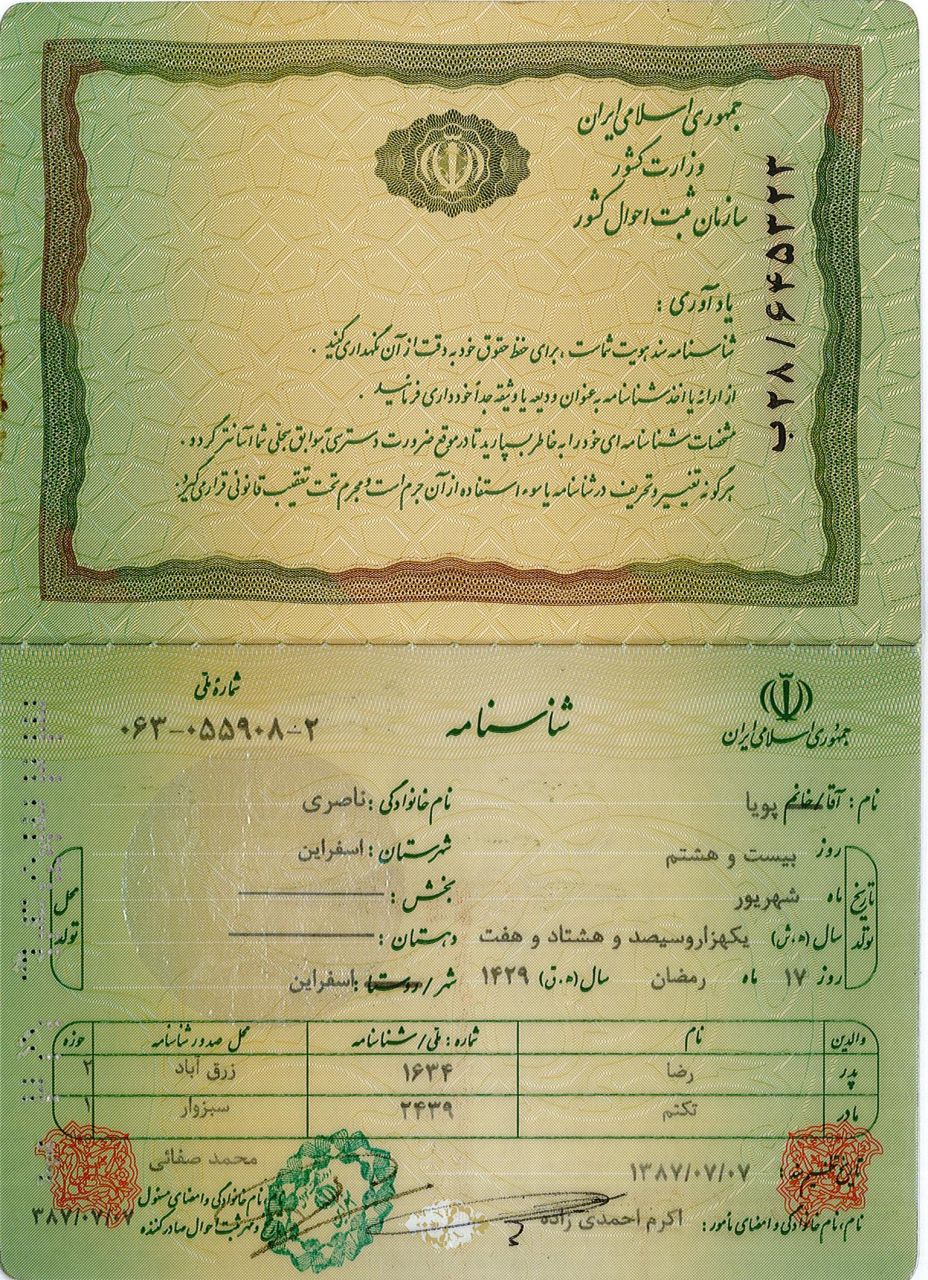 جمهوری اسلامی ایران
وزارت کشور
سازمان ثبت احوال کشور
ب۲۸/۶۴۵۲۲۲
یادآوری :
شناسنامه سند هویت شماست ، برای حفظ حقوق خود به دقت از آن نگهداری کنید .
از ارائه یا اخذ شناسنامه به عنوان ودیعه یا وثیقه جداً خودداری فرمائید .
مشخصات شناسنامه ای خود را به خاطر بسپارید تا در موقع ضرورت دسترسی به سوابق سجلی شما آسانتر گردد .
هرگونه تغییر و تحریف در شناسنامه یا سوء استفاده از آن جرم است و مجرم تحت تعقیب قانونی قرار می گیرد .
جمهوری اسلامی ایران
شناسنامه
شماره ملی
۰۶۳-۰۵۵۹۰۸-۲
نام : آقا/خانم پویا
نام خانوادگی : ناصری
تاریخ تولد
روز بیست و هشتم
ماه شهریور
سال (ه.ش) یکهزاروسیصد و هشتاد و هفت
روز ۱۷ ماه رمضان سال (ه.ق) ۱۴۲۹
محل تولد
شهرستان : اسفراین
بخش :
دهستان :
شهر/روستا : اسفراین
والدین نام شماره : ملی/شناسنامه محل صدور شناسنامه حوزه
پدر رضا ۱۶۳۴ زرق آباد ۲
مادر تکتم ۲۴۳۹ سبزوار ۱
تاریخ تنظیم سند : ۱۳۸۷/۰۷/۰۷
نام، نام خانوادگی و امضای مأمور : اکرم احمدی زاده
محمد صفائی
نام، نام خانوادگی و امضای مسئول
تاریخ و مهر ثبت احوال صادرکننده
۳۸۷/۰۷/۰۷